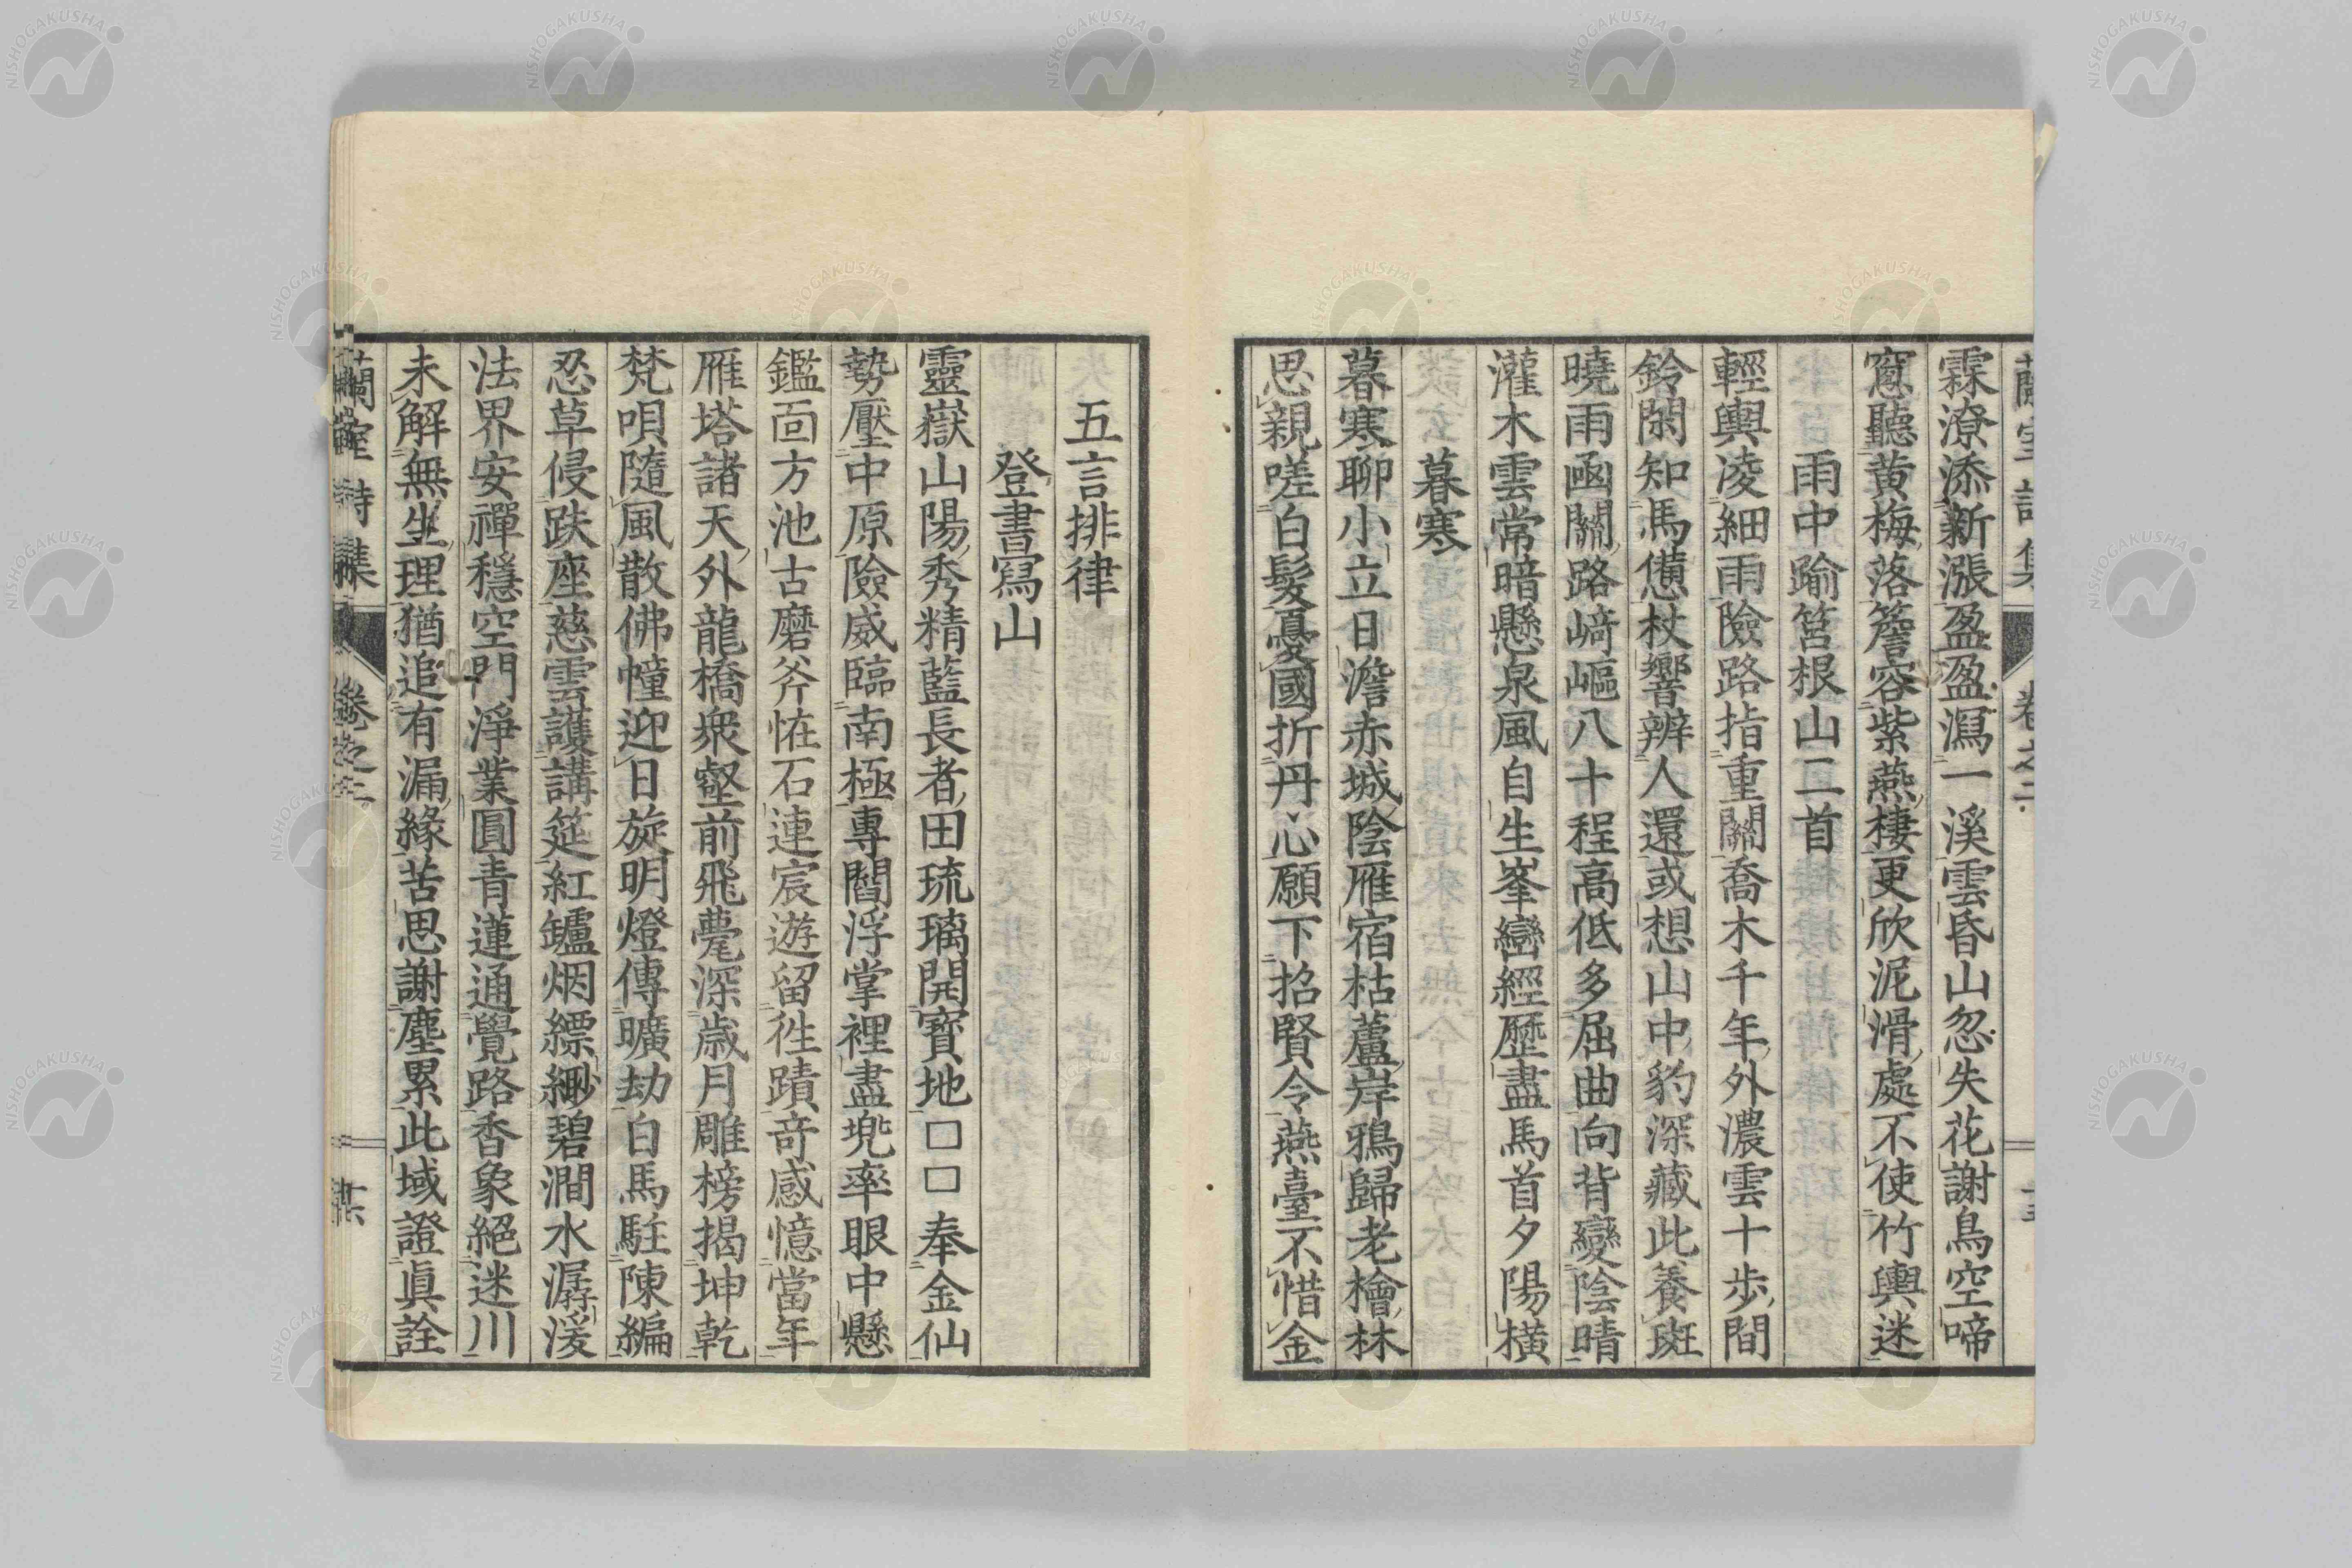 霖潦添新漲盈盈瀉一溪雲昏山忽失花謝鳥空啼
窻聽黃梅落簷容紫燕棲更欣泥滑處不使竹輿迷
雨中踰筥根山二首
輕輿凌細雨險路指重關喬木千年外濃雲十步間
鈴閑知馬憊杖響辨人還或想山中豹深藏此養斑
曉雨函關路﨑嶇八十程高低多屈曲向背變陰晴
灌木雲常暗懸泉風自生峯巒經歷盡馬首夕陽橫
暮寒
暮寒聊小立日澹赤城陰雁宿枯蘆岸鴉歸老檜林
思親嗟白髮憂國折丹心願下招賢令燕臺不惜金
五言排律
登書寫山
靈嶽山陽秀精藍長者田琉璃開寶地□□奉金仙
勢壓中原險威臨南極專閻浮掌裡盡兜率眼中懸
鑑面方池古磨斧怪石連宸遊留徃蹟竒感憶當年
雁塔諸天外龍橋衆壑前飛甍深歲月雕榜揭坤乾
梵唄隨風散佛幢迎日旋明燈傳曠劫白馬駐陳編
忍草侵趺座慈雲護講筵紅鑪烟縹緲碧澗水潺湲
法界安禪穩空門淨業圓青蓮通覺路香象絕迷川
未解無生理猶追有漏緣苦思謝塵累此域證眞詮